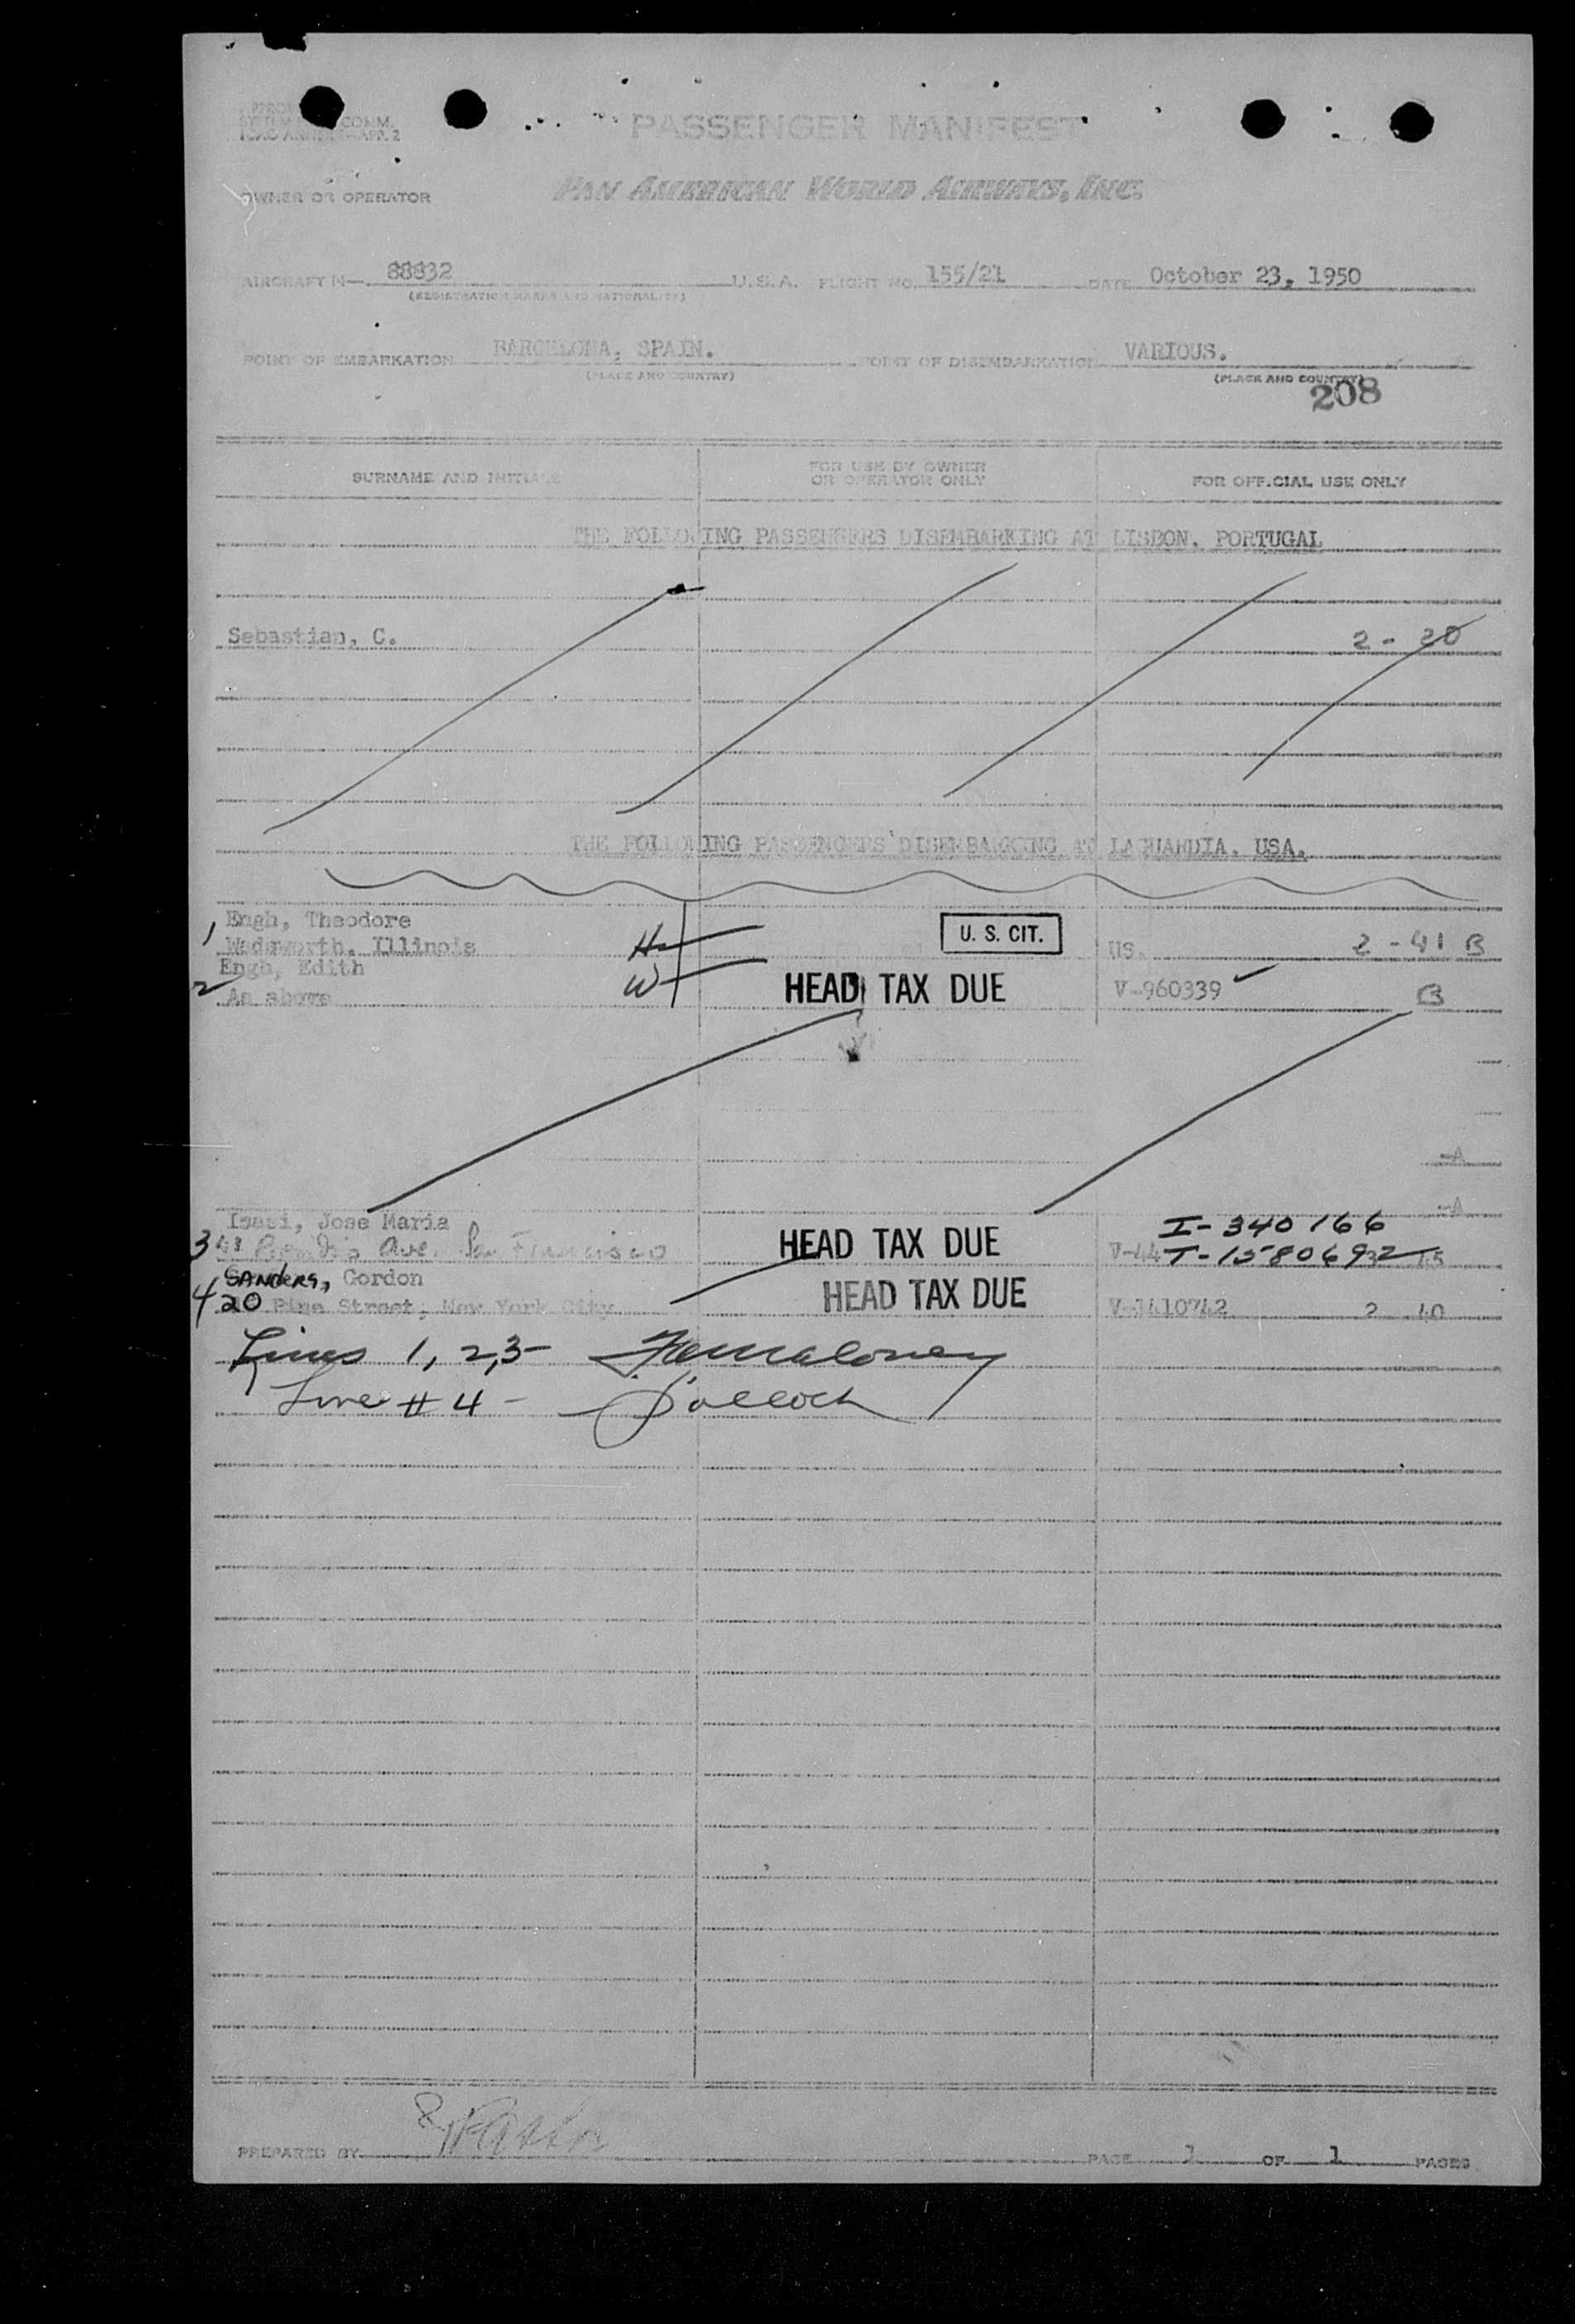 PASSENGER MANIFEST
PAN AMERICAN WORLD AIRWAYS, INC.
OWNER OR OPERATOR
AIRCRAFT N— 88832 U.S.A. FLIGHT NO. 155/21 DATE October 23, 1950
(REGISTRATION MARKS AND NATIONALITY)
POINT OF EMBARKATION BARCELONA, SPAIN. POINT OF DISEMBARKATION VARIOUS.
(PLACE AND COUNTRY) (PLACE AND COUNTRY)
208
SURNAME AND INITIALS FOR USE BY OWNER OR OPERATOR ONLY FOR OFFICIAL USE ONLY
THE FOLLOWING PASSENGERS DISEMBARKING AT LISBON. PORTUGAL
Sebastian, C. 2 - 20
THE FOLLOWING PASSENGERS DISEMBARKING AT LAGUARDIA. USA.
1 Engh, Theodore
Wadsworth, Illinois H U. S. CIT. US. 2 - 41 B
2 Engh, Edith
As above W HEAD TAX DUE V-960339 B
Isasi, Jose Maria I-340166
3 Ave. San Francisco HEAD TAX DUE T-1580692
SANDERS, Gordon
4 20 Pine Street, New York City HEAD TAX DUE 2 40
Lines 1, 2, 3-
Line # 4 -
PREPARED BY PAGE 1 OF 1 PAGES